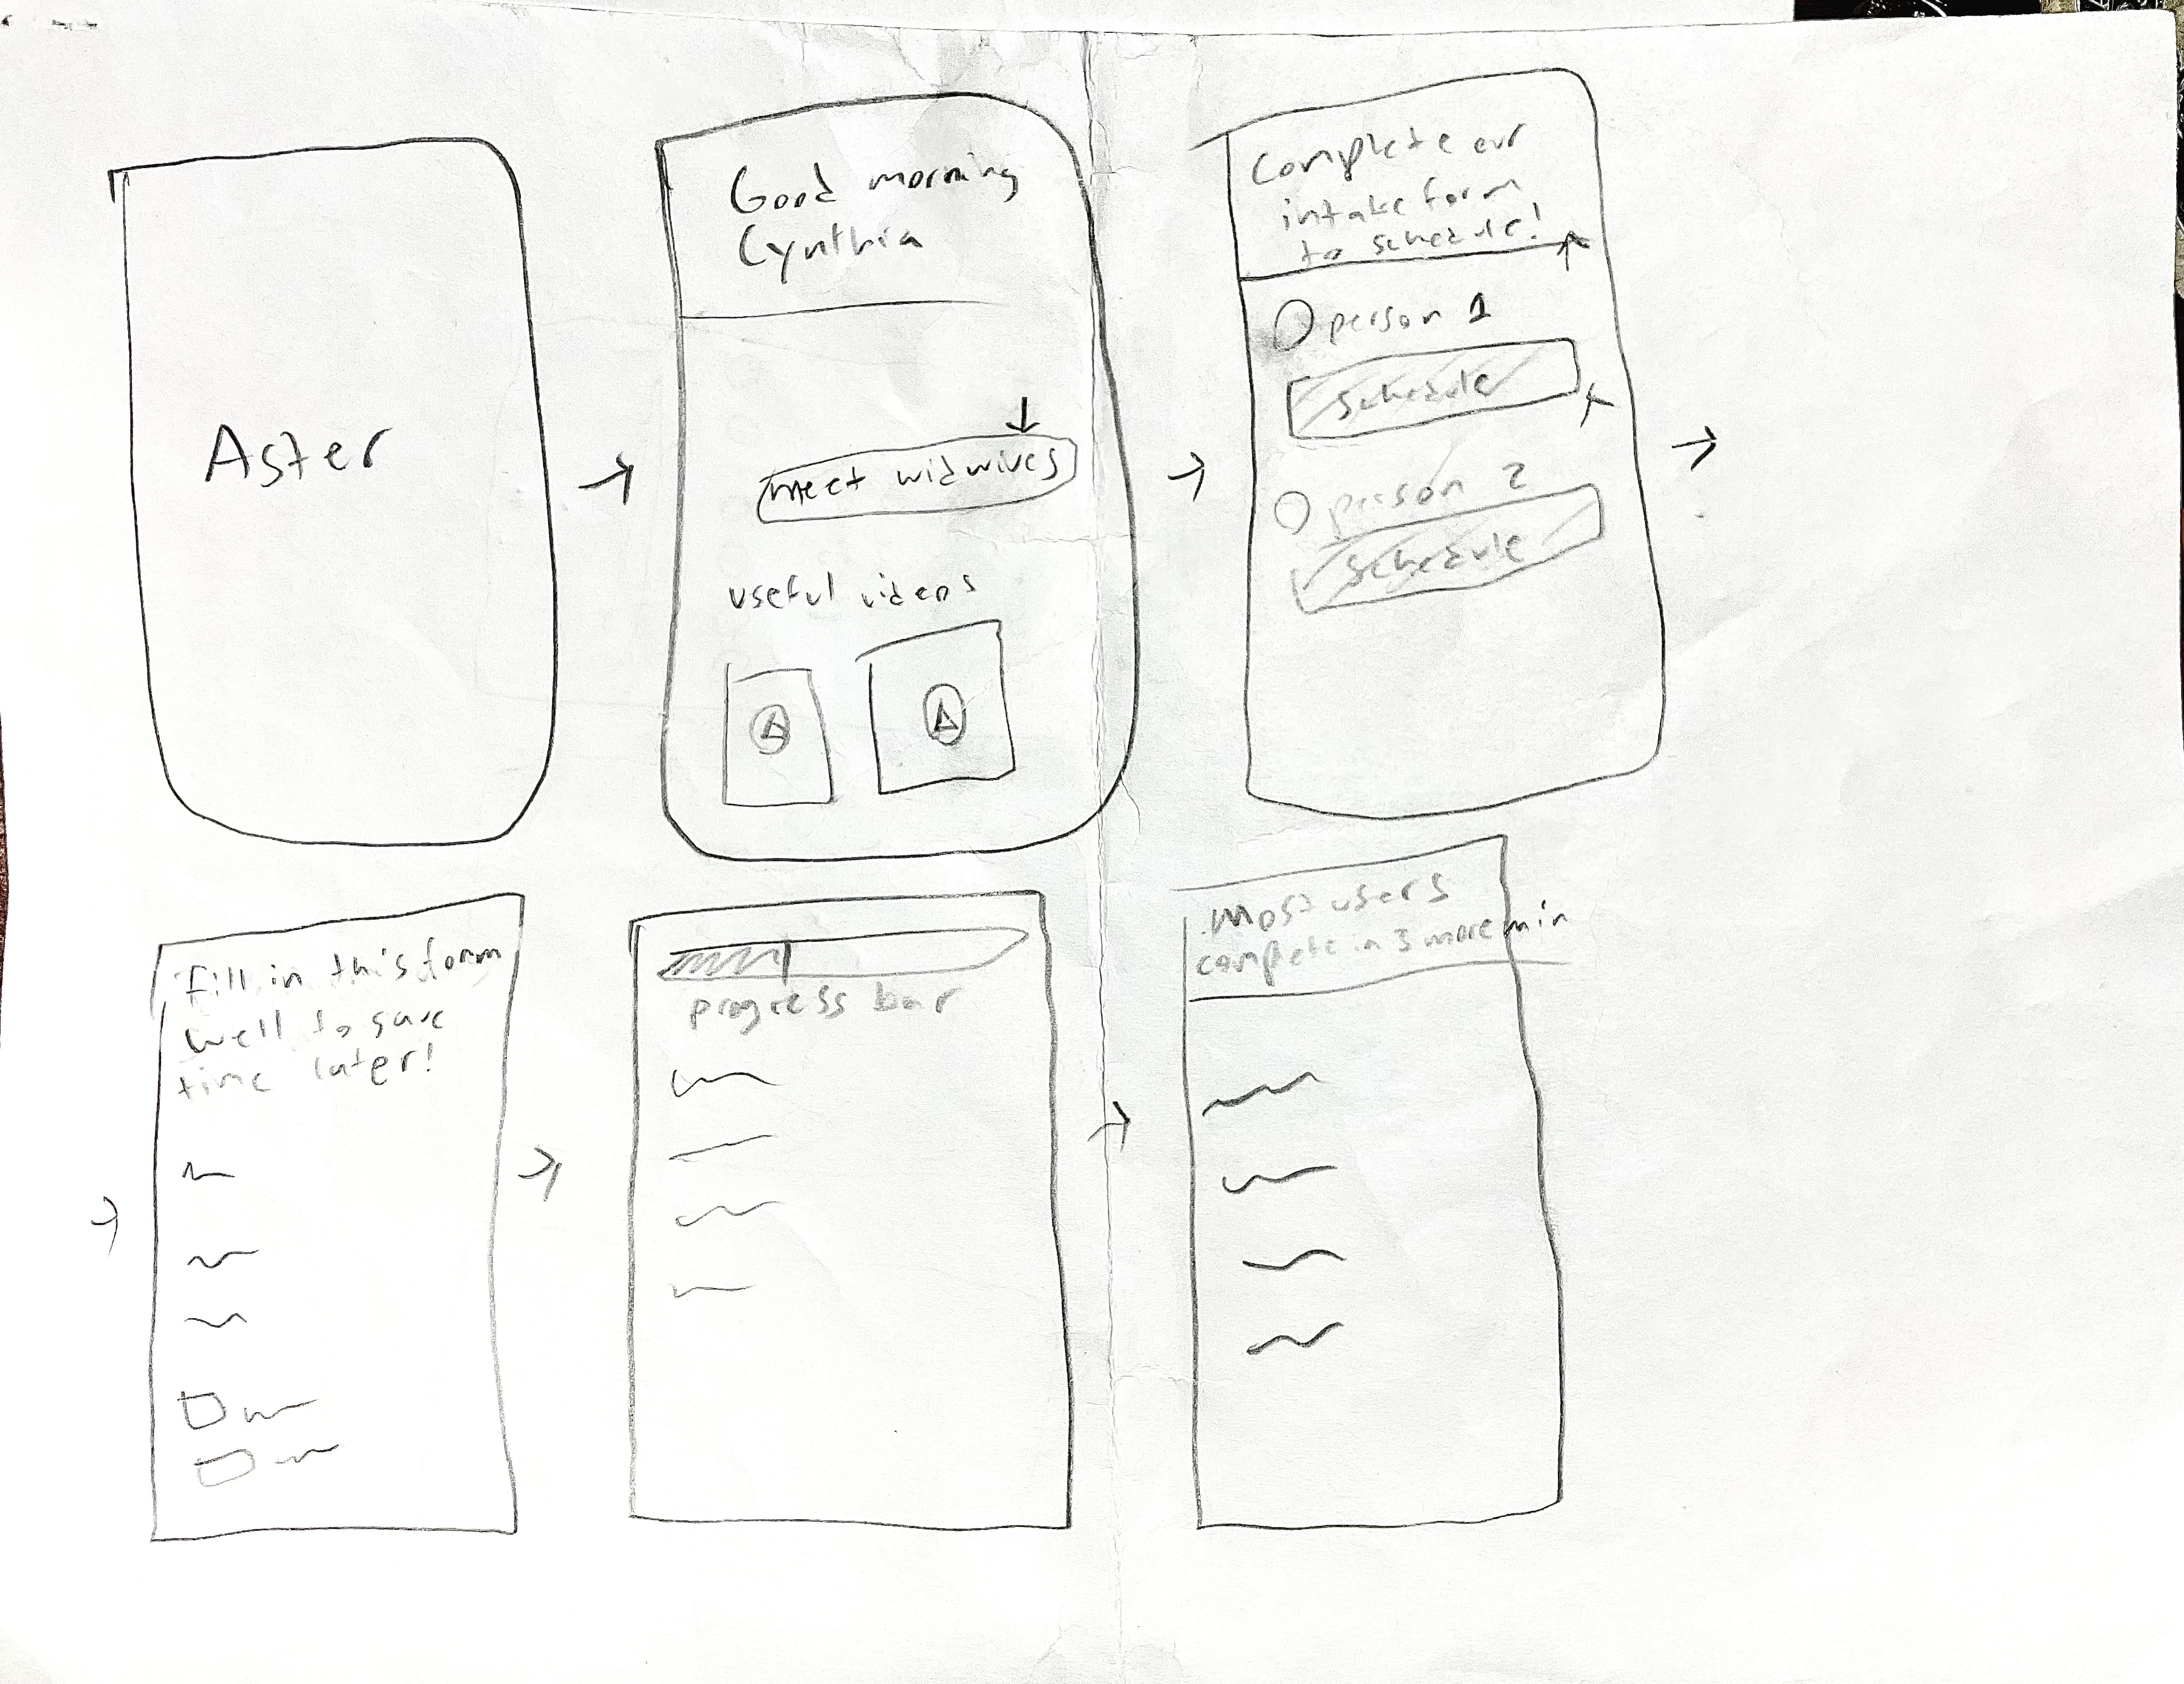 Aster
Good morning
Cynthia
meet widwives
useful videos
Complete our
intake form
to schedule!
person 1
schedule
person 2
schedule
Fill in this form
well to save
time later!
progress bar
Most users
complete in 3 more min